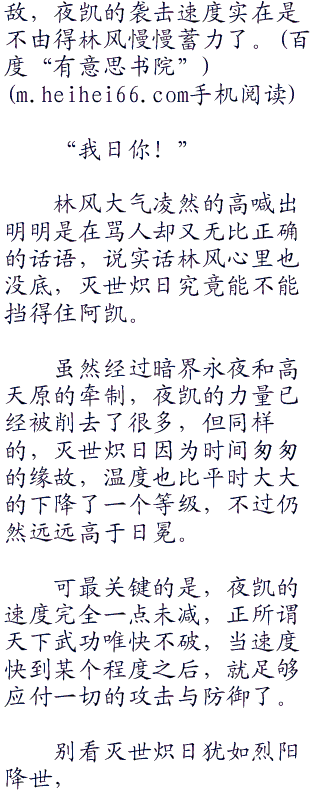 敌，夜凯的袭击速度实在是
不由得林风慢慢蓄力了。(百
度“有意思书院”)
(m.heihei66.com手机阅读)
“我日你！”
林风大气凌然的高喊出
明明是在骂人却又无比正确
的话语，说实话林风心里也
没底，灭世炽日究竟能不能
挡得住阿凯。
虽然经过暗界永夜和高
天原的牵制，夜凯的力量已
经被削去了很多，但同样
的，灭世炽日因为时间匆匆
的缘故，温度也比平时大大
的下降了一个等级，不过仍
然远远高于日冕。
可最关键的是，夜凯的
速度完全一点未减，正所谓
天下武功唯快不破，当速度
快到某个程度之后，就足够
应付一切的攻击与防御了。
别看灭世炽日犹如烈阳
降世，